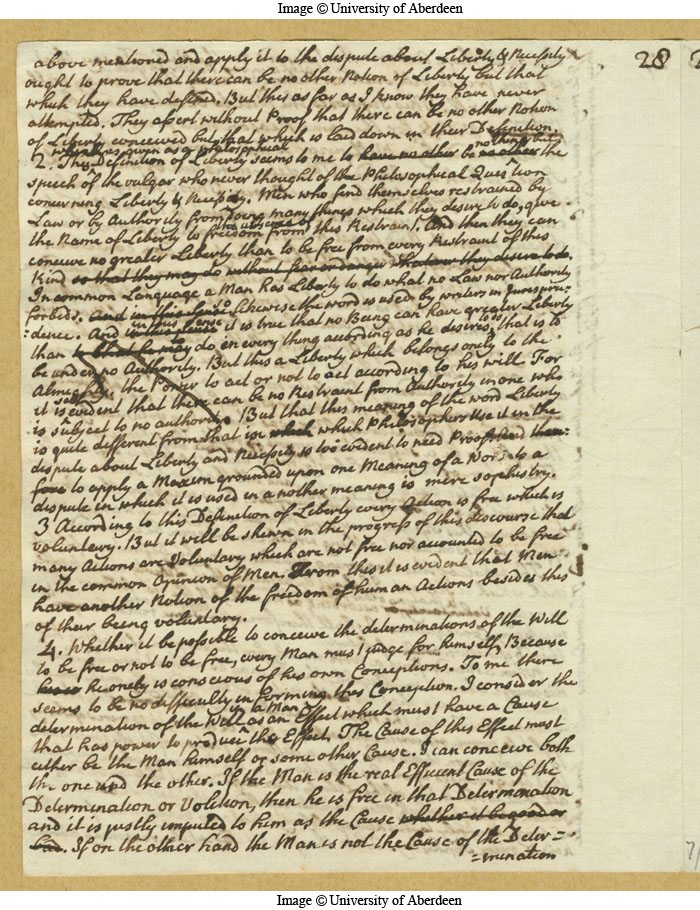 Image © University of Aberdeen
28
above mentioned and apply it to the dispute about Liberty & Necessity
ought to prove that there can be no other Notion of Liberty but that
which they have defined. But this as far as I know they have never
attempted. They assert without Proof that there can be no other Notion
of Liberty conceived but that which is laid down in their Definition.
which is given as a philosophical nothing but
2. This Definition of Liberty seems to me to have no other be no other the
speech of the vulgar who never thought of the Philosophical Question
concerning Liberty & Necessity. Men who find themselves restrained by
Law or by Authority from doing many things which they desire to do, give
the Name of Liberty to freedom from this Restraint. And then they can
conceive no greater Liberty than to be free from every Restraint of this
Kind so that they may do without fear or danger whatever they desire to do.
In common Language a Man has Liberty to do what no Law nor Authority
forbids. And in this Sense Likewise the word is used by writers in Jurispru=
=dence. And in this sense it is true that no Being can have greater Liberty
than to do in every thing according as he desires, that is to
be under no Authority. But this a Liberty which belongs only to the
Almighty. the Power to act or not to act according to his will. For
it is evident that there can be no Restraint from Authority in one who
is subject to no authority. But that this meaning of the word Liberty
is quite different from that in which which Philosophers use it in the
dispute about Liberty and Necessity is too evident to need Proof. And there=
fore to apply a Maxim grounded upon one Meaning of a Word to a
dispute in which it is used in another meaning is mere sophistry.
3 According to this Definition of Liberty every Action is free which is
voluntary. But it will be shewn in the progress of this discourse that
many Actions are Voluntary which are not free nor accounted to be free
in the common Opinion of Men. From this it is evident that Men
have another Notion of the freedom of human Actions besides this
of their being voluntary.
4. Whether it be possible to conceive the determinations of the Will
to be free or not to be free, every Man must judge for himself, Because
he onely is conscious of his own Conceptions. To me there
seems to be no difficulty in forming this Conception. I consider the
in a Man
determination of the Will as an Effect which must have a Cause
that has power to produce this Effect. The Cause of this Effect must
either be the Man himself or some other Cause. I can conceive both
the one and the other. If the Man is the real Efficient Cause of the
Determination or Volition, then he is free in that Determination
and it is justly imputed to him as the Cause whether it be good or
bad. If on the other hand the Man is not the Cause of the Deter=
=mination
Image © University of Aberdeen